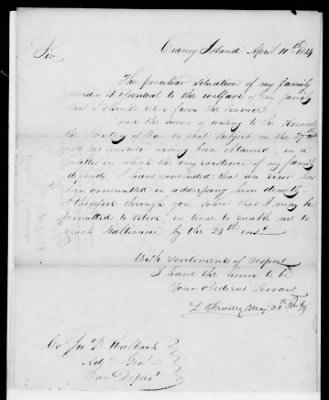 Craney Island April 10th 1814
Sir,
The peculiar situation of my family
renders it essential to the welfare of my family
that I should retire from the service
I had the honor of writing to the Honorable
the Secretary of War on that subject on the 27th
no answer having been obtained, in a
matter on which the very existence of my family
depends, I have concluded that an error has
been committed in addressing him directly
I therefore through you solicit that I may be
permitted to retire, in time to enable me to
reach Baltimore by the 25th inst.
With sentiments of respect
I have the honor to be
Your obedient Servant
Maj. 20th
Col. Jno. B. Walbach
Adj. Genl.
War Depar